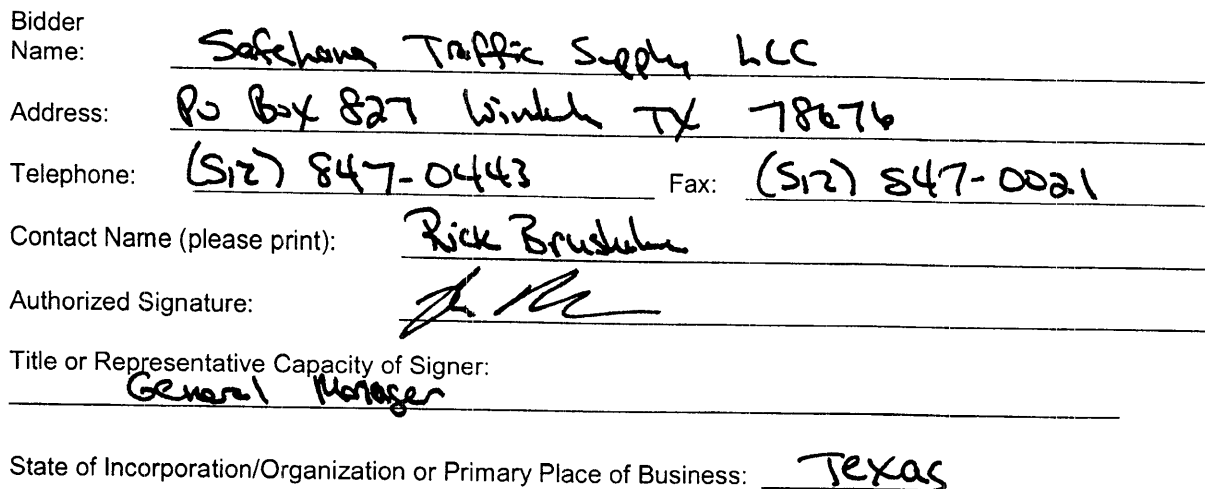 Bidder
Name: Traffic Supply LLC
Address: PO Box 827 TX 78676
Telephone: (512) 847-0443 Fax: (512) 847-0021
Contact Name (please print): Rick
Authorized Signature:
Title or Representative Capacity of Signer:
General Manager
State of Incorporation/Organization or Primary Place of Business: Texas